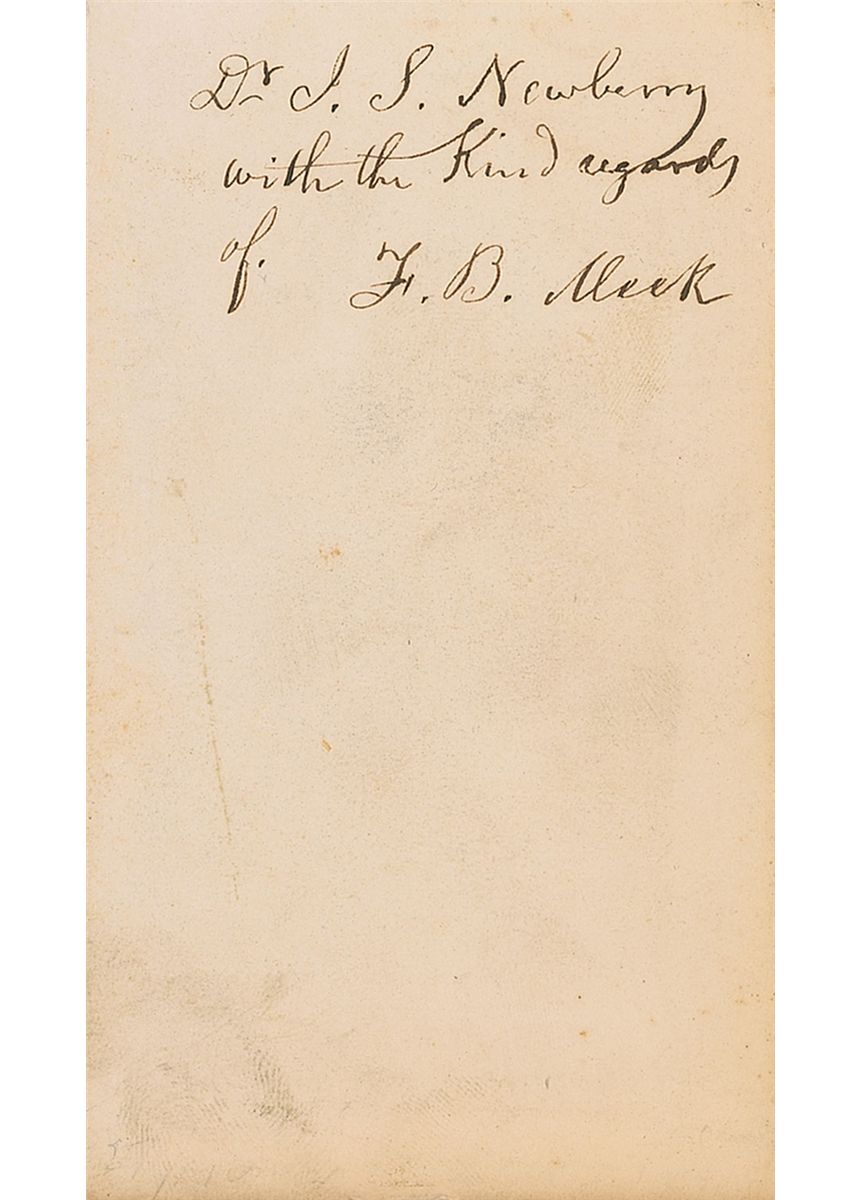 Dr J. S. Newberry
with the Kind regards
of. F. B. Meek